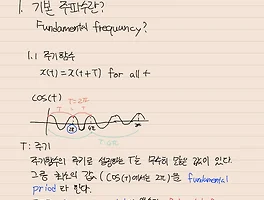 1. 기본 주파수란?
Fundamental frequency?
1.1 주기함수
x(t) = x(t+T) for all t
T=2π
cos(t)
2π
4π
T: 주기
주기함수의 주기로 설정하는 T는 무수히 많은 값이 있다.
그중 최소의 값 (cos(t)에서는 2π)을 fundamental
period 라 한다.